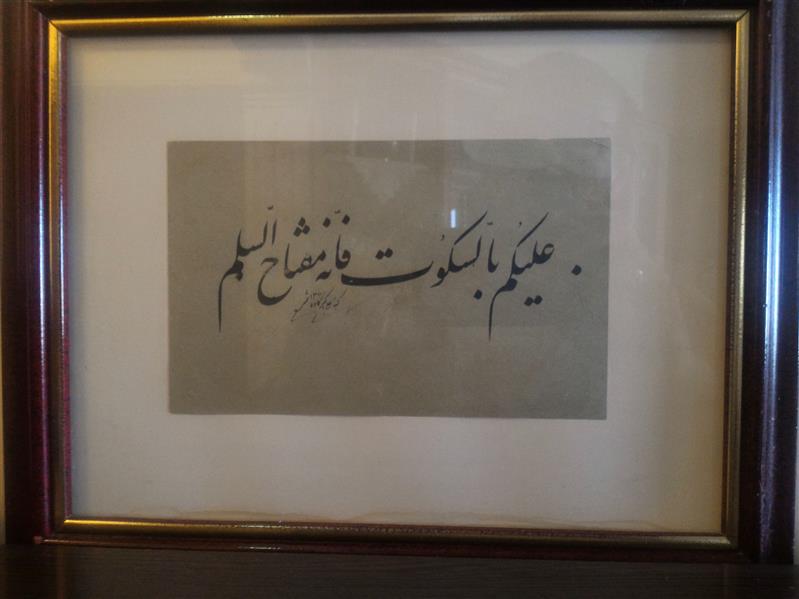 علیکُم بالّسکوُت فانّه مفتاح الّسلم